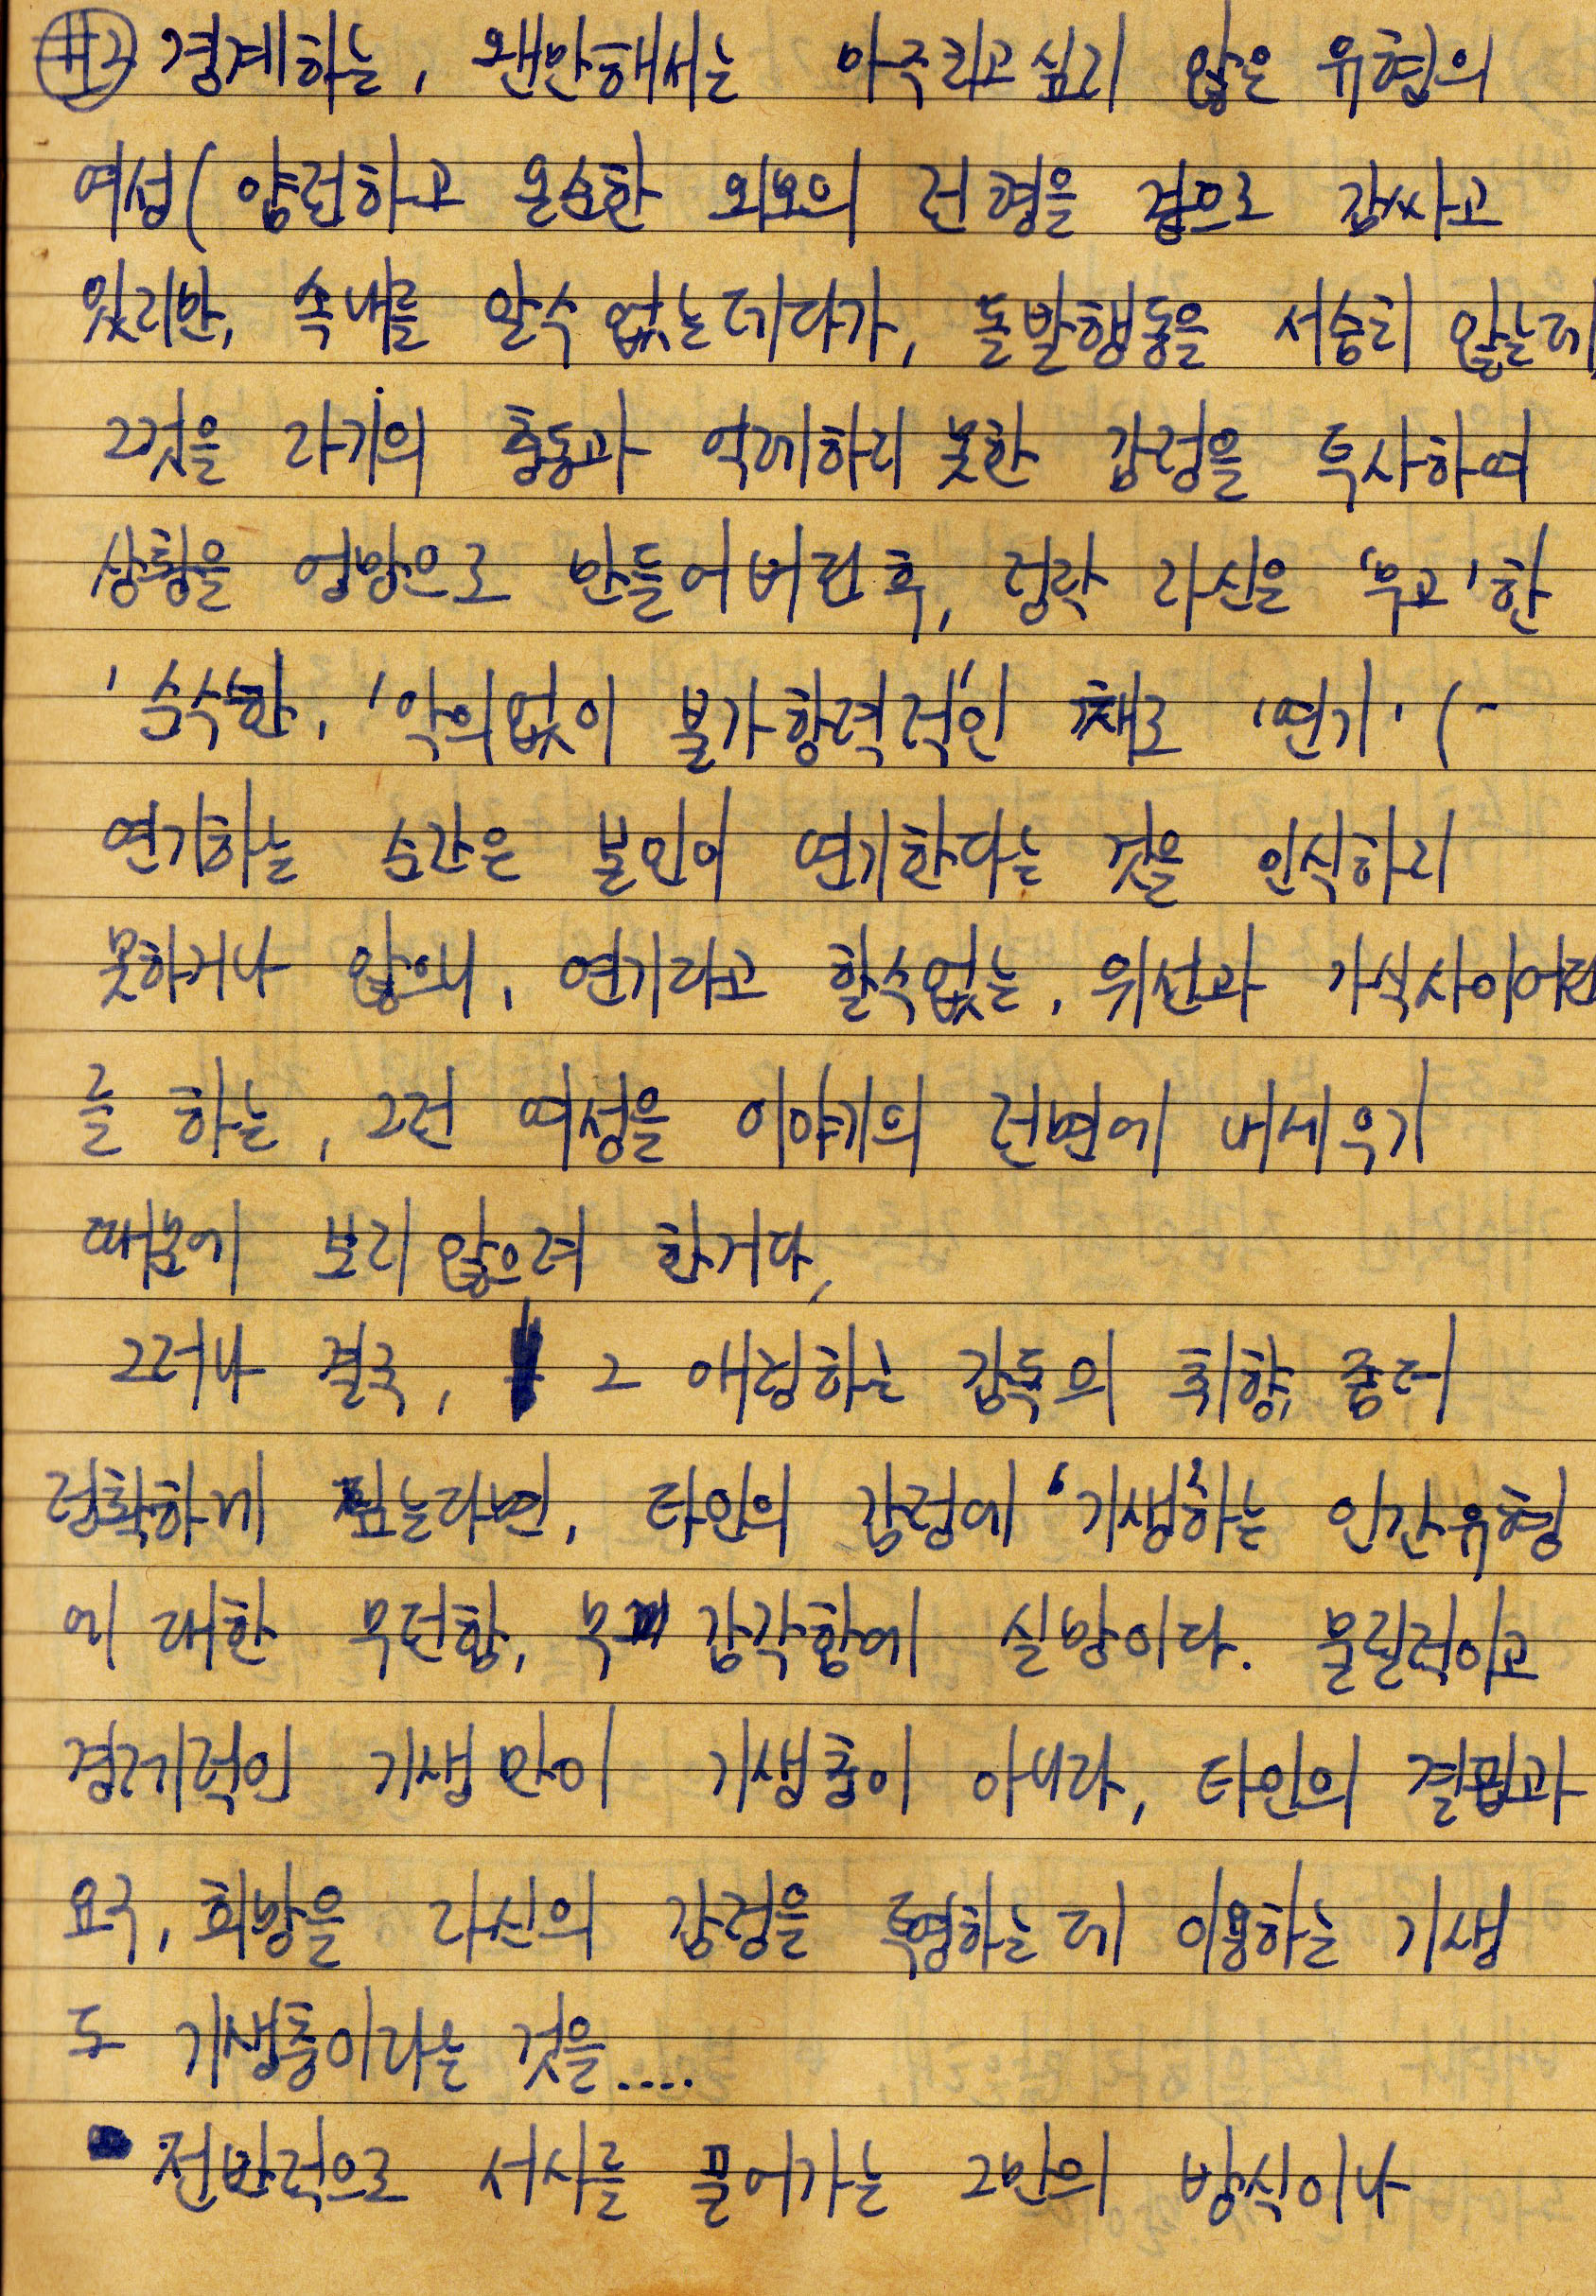 #2 경계하는, 왠만해서는 마주치고 싶지 않은 유형의
여성(얌전하고 온순한 외모의 전형을 겉으로 감싸고
있지만, 속내를 알수 없는데다가, 돌발행동을 서슴치 않는데,
그것을 자기의 충동과 억제하지 못한 감정을 투사하여
상황을 엉망으로 만들어버린 후, 정작 자신은 '무고'한
'순수'한, '악의없이 불가항력적'인 채로 '연기' (-
연기하는 순간은 본인이 연기한다는 것을 인식하지
못하거나 않으니, 연기라고 할수없는, 위선과 가식사이 어딘
를 하는, 그런 여성을 이야기의 전면에 내세우기
때문에 보지 않으려 한거다,
그러나 결국, 그 애정하는 감독의 취향, 좀더
정확하게 짚는다면, 타인의 감정에 '기생'하는 인간유형
에 대한 무던함, 무감각함에 실망이다. 물질적이고
경제적인 기생만이 기생충이 아니라, 타인의 결핍과
요구, 희망을 자신의 감정을 투영하는데 이용하는 기생
도 기생충이라는 것을....
전반적으로 서사를 끌어가는 그만의 방식이나